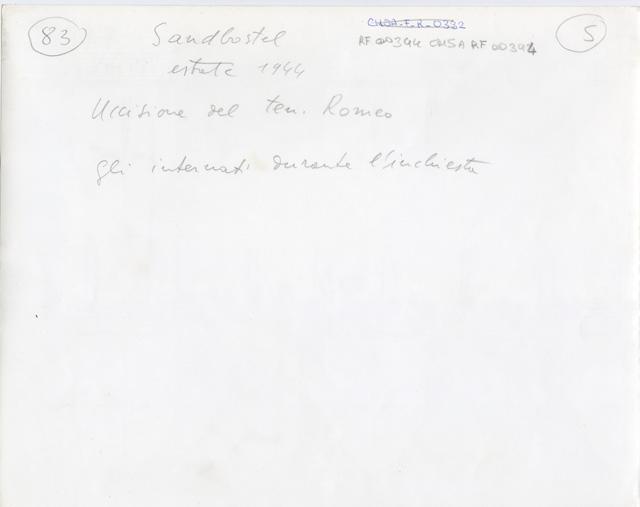 83
Sandbostel
CMSA-F.R-0332
5
RF 00394 CMSA RF 00394
estate 1944
Uccisione del ten. Romeo
gli internati durante l'inchiesta